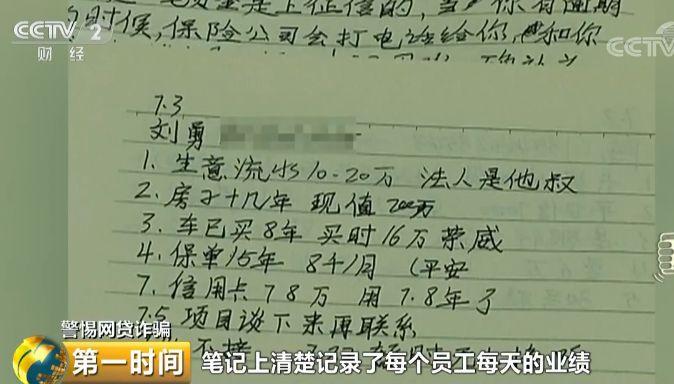 CCTV 2
财经
CCTV
时候,保险公司会打电话给你,和你
7.3
刘勇
1. 生意流水10-20万 法人是他叔
2. 房子十几年 现值200万
3. 车已买8年 买时16万 荣威
4. 保单15年 8千1月 (平安
7. 信用卡 78万 用 7.8年了
7.5 项目谈下来再联系
警惕网贷诈骗
第一时间
笔记上清楚记录了每个员工每天的业绩